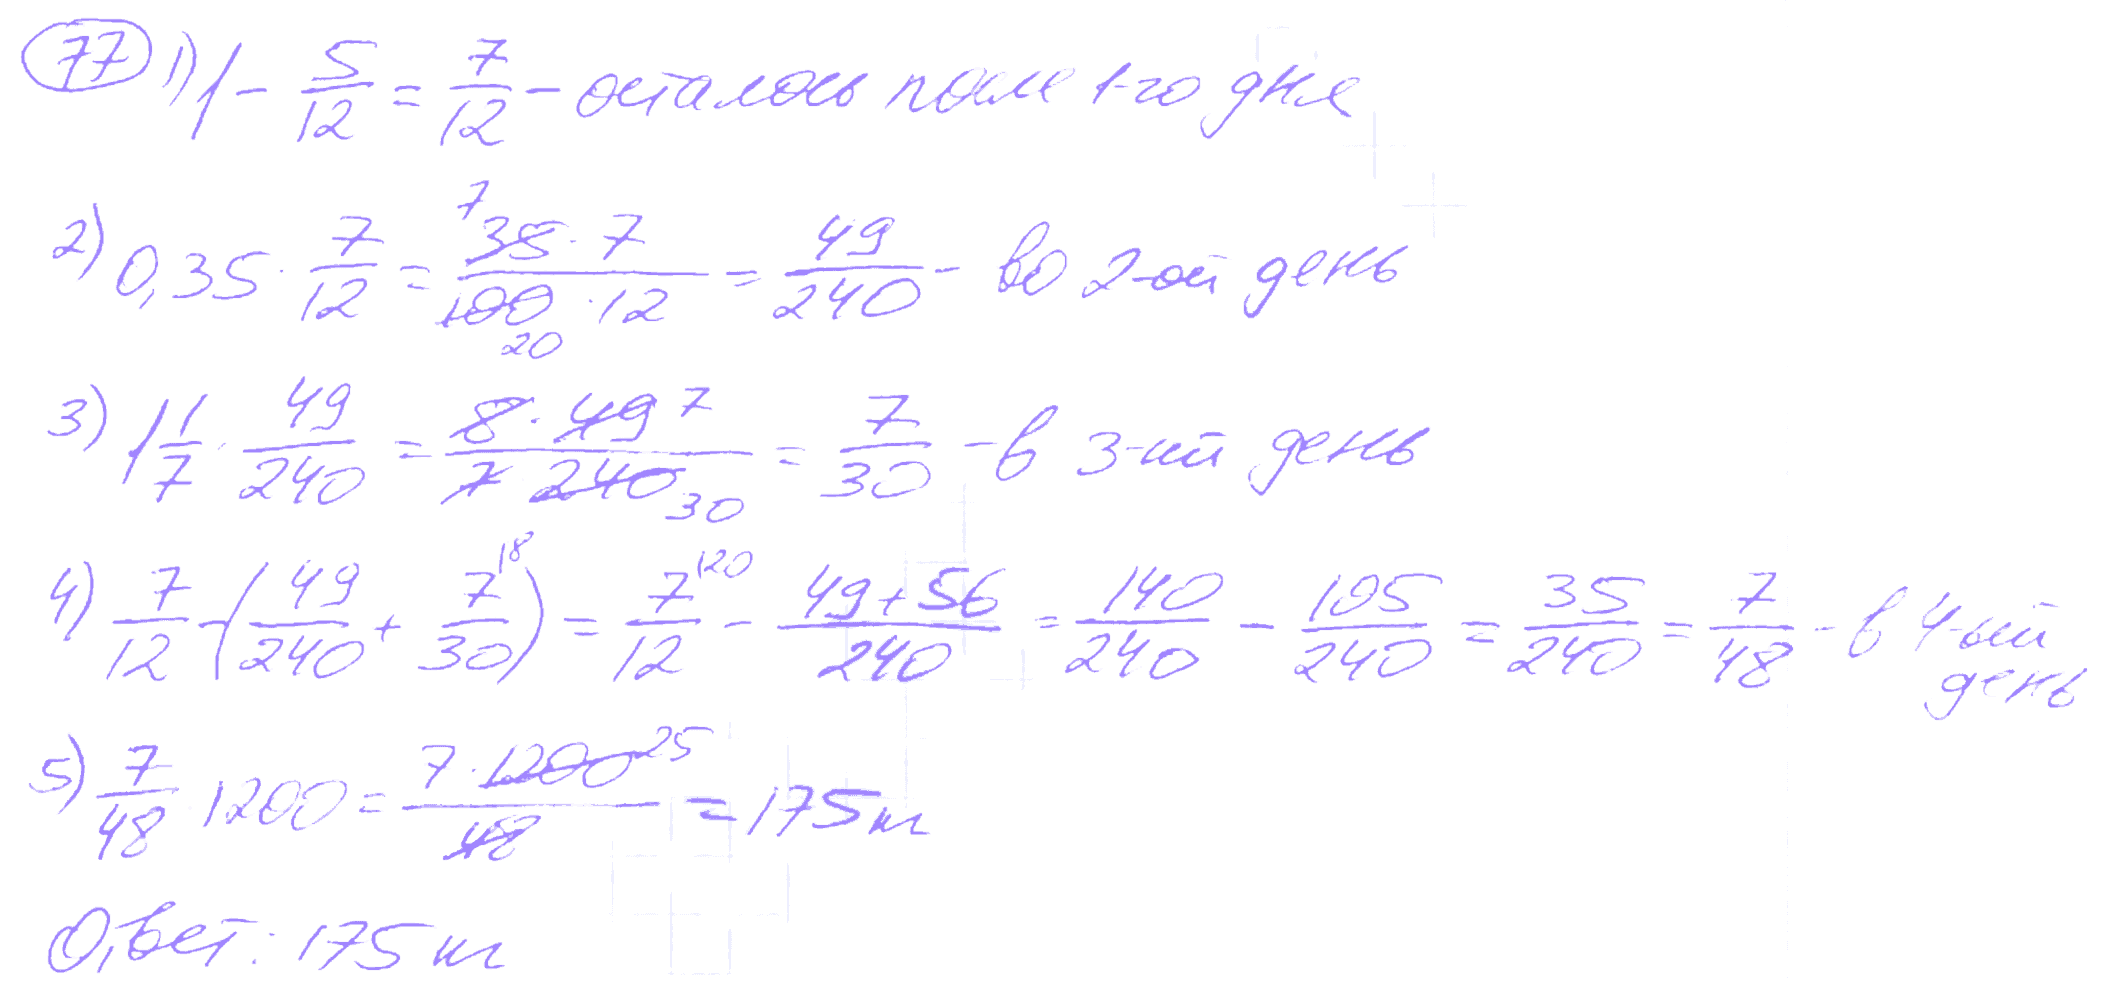 77 1) 1 - 5/12 = 7/12 - осталось после 1-го дня
2) 0,35 · 7/12 = 7 35 · 7 / 100 · 12 20 = 49/240 - во 2-ой день
3) 1 1/7 · 49/240 = 8 · 49 7 / 7 240 30 = 7/30 - в 3-ий день
4) 7/12 - (49/240 + 7/30 \18) = 7/12 \120 - 49+56/240 = 140/240 - 105/240 = 35/240 = 7/48 - в 4-ый день
5) 7/48 · 1200 = 7 · 1200 25 / 48 = 175 кг
Ответ: 175 кг